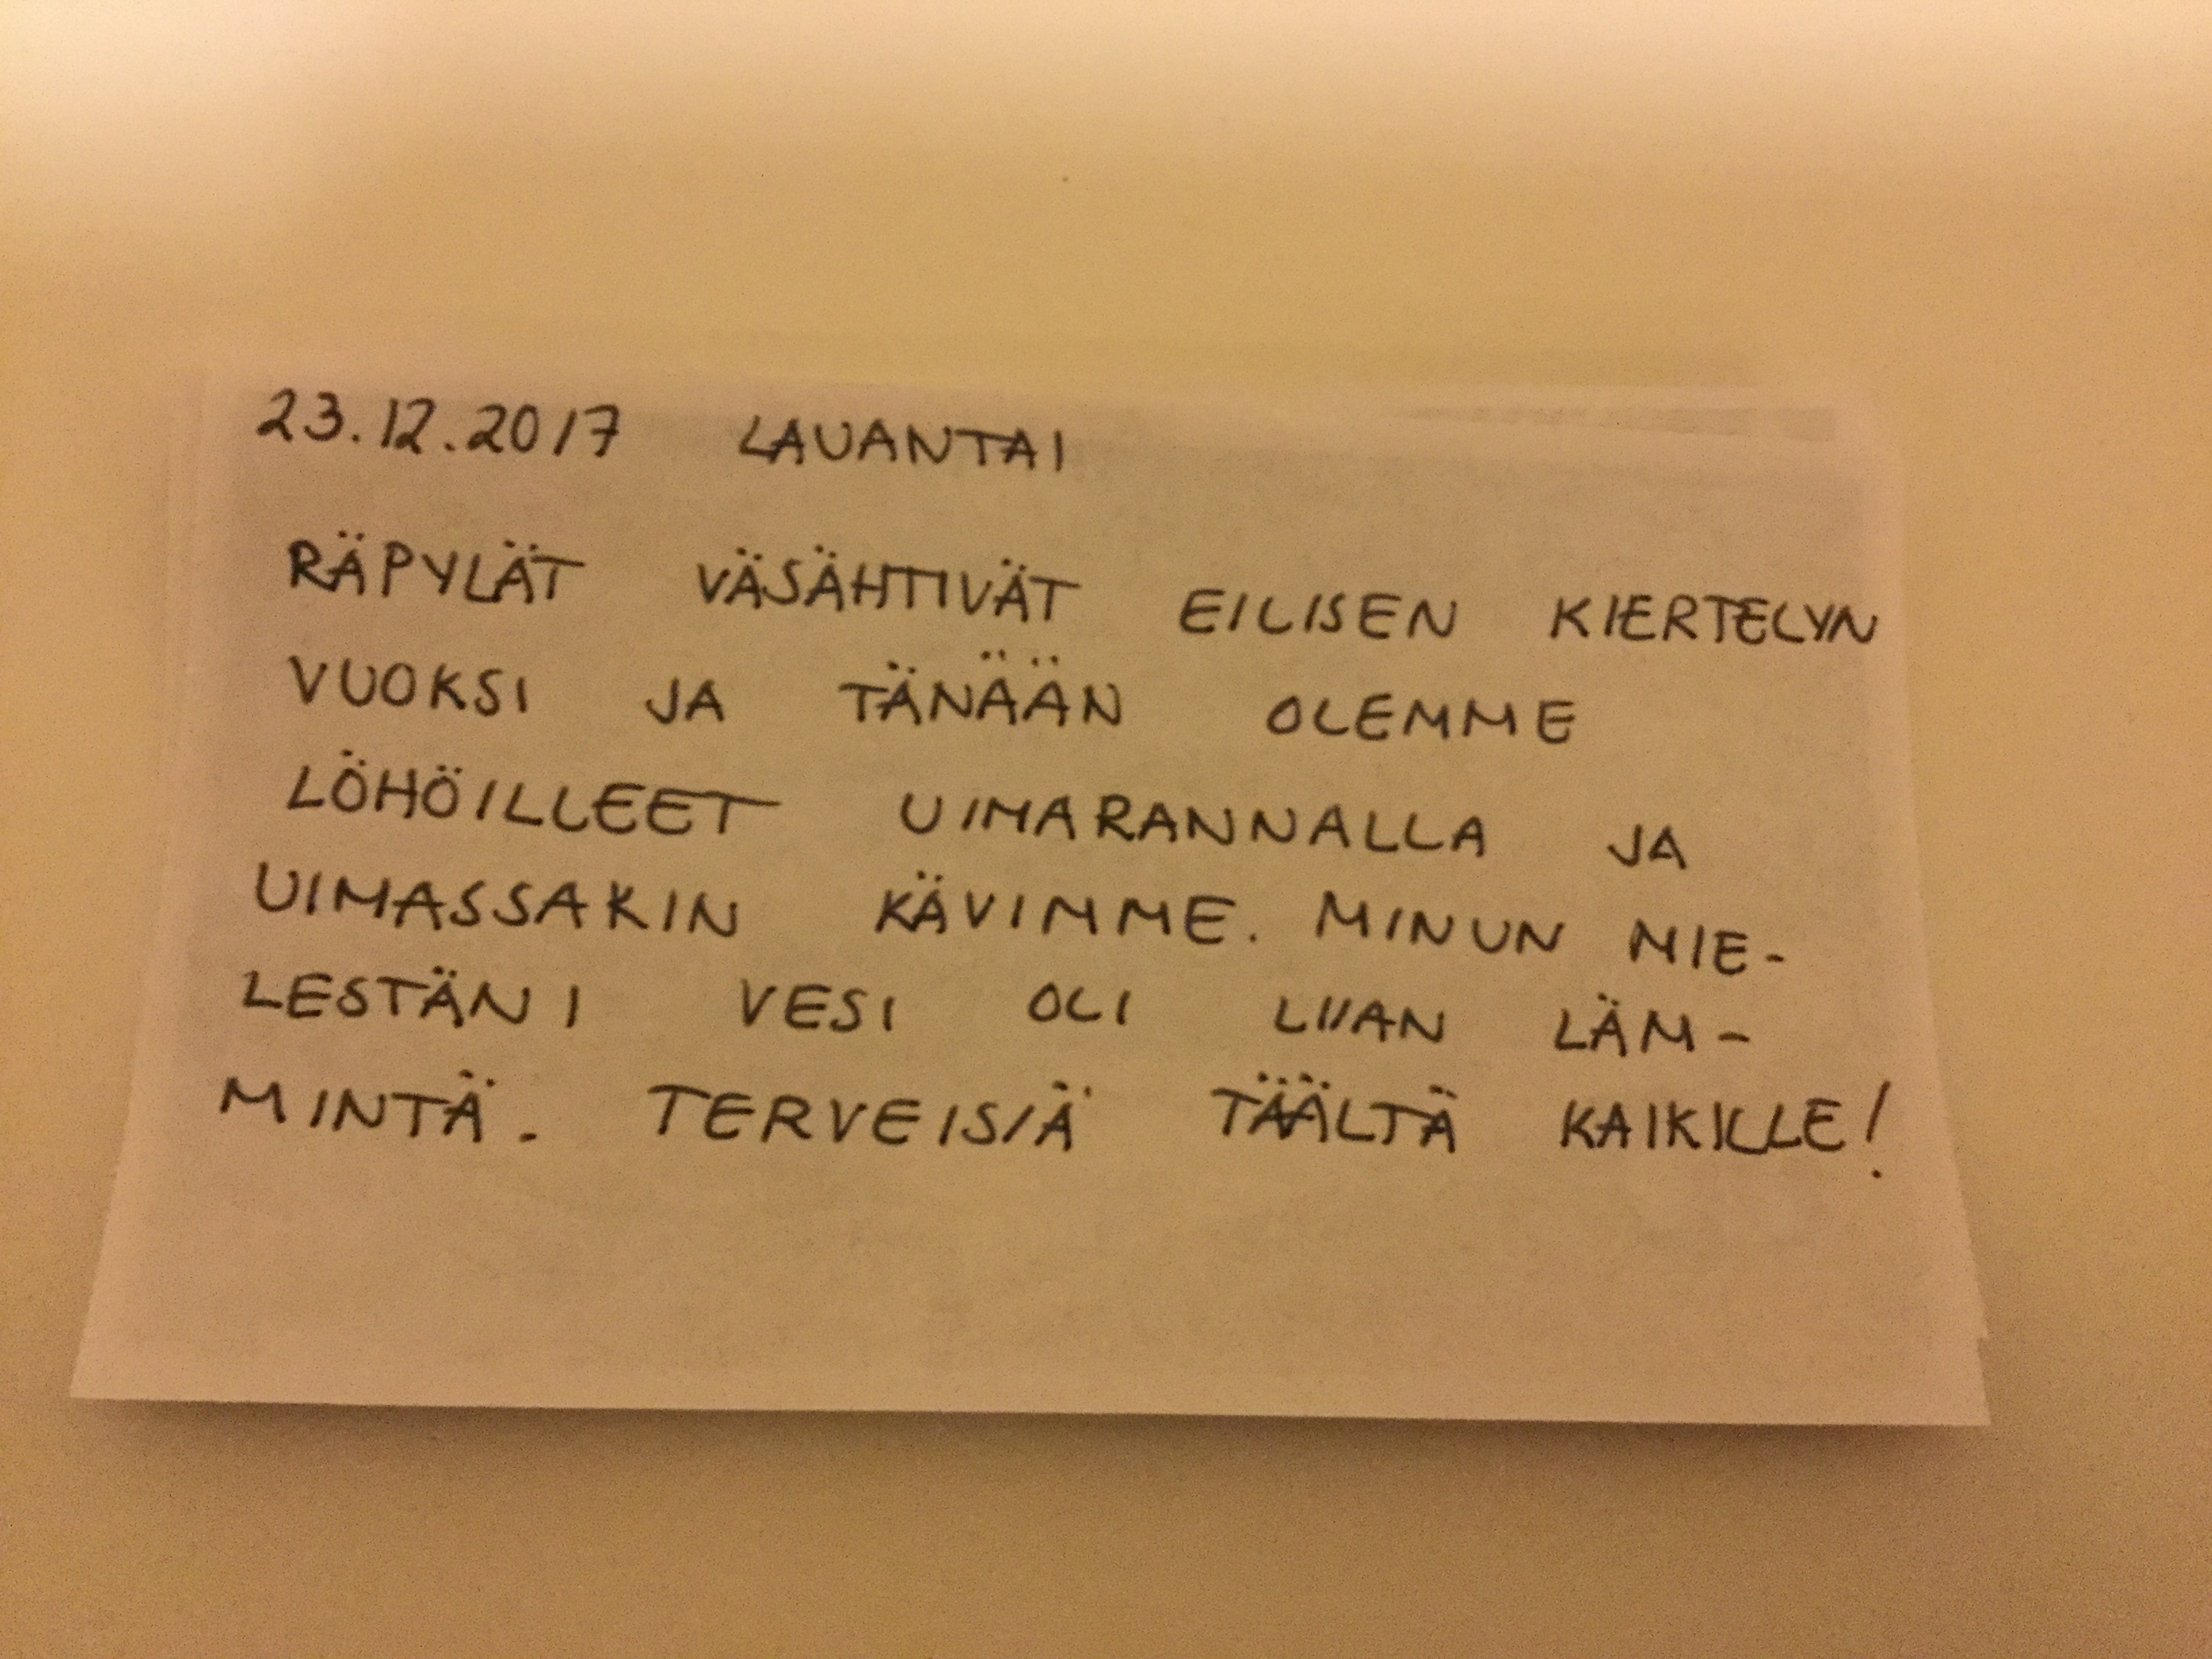 23.12.2017 LAUANTAI
RÄPYLÄT VÄSÄHTIVÄT EILISEN KIERTELYN
VUOKSI JA TÄNÄÄN OLEMME
LÖHÖILLEET UIMARANNALLA JA
UIMASSAKIN KÄVIMME. MINUN MIE-
LESTÄNI VESI OLI LIIAN LÄM-
MINTÄ. TERVEISIÄ TÄÄLTÄ KAIKILLE!